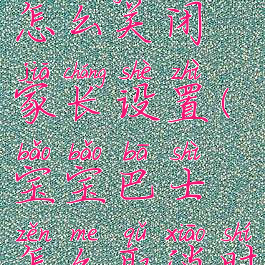 怎么关闭
jiā zhǎng shè zhì
家长设置(
bǎo bǎo bā shì
宝宝巴士
zěn me qǔ xiāo shí
怎么取消时